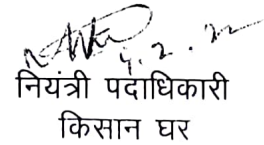 4.2.22
नियंत्री पदाधिकारी
किसान घर